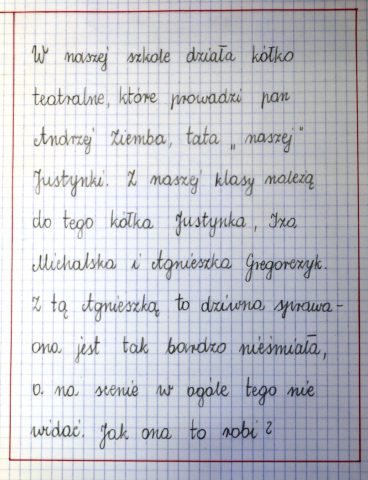 W naszej szkole działa kółko
teatralne, które prowadzi pan
Andrzej Ziemba, tata „naszej”
Justynki. Z naszej klasy należą
do tego kółka Justynka, Iza
Michalska i Agnieszka Gregorczyk.
Z tą Agnieszką to dziwna sprawa –
ona jest tak bardzo nieśmiała,
a na scenie w ogóle tego nie
widać. Jak ona to robi?